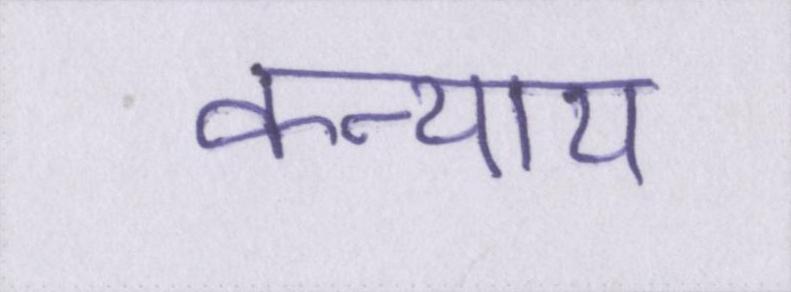 कन्याय